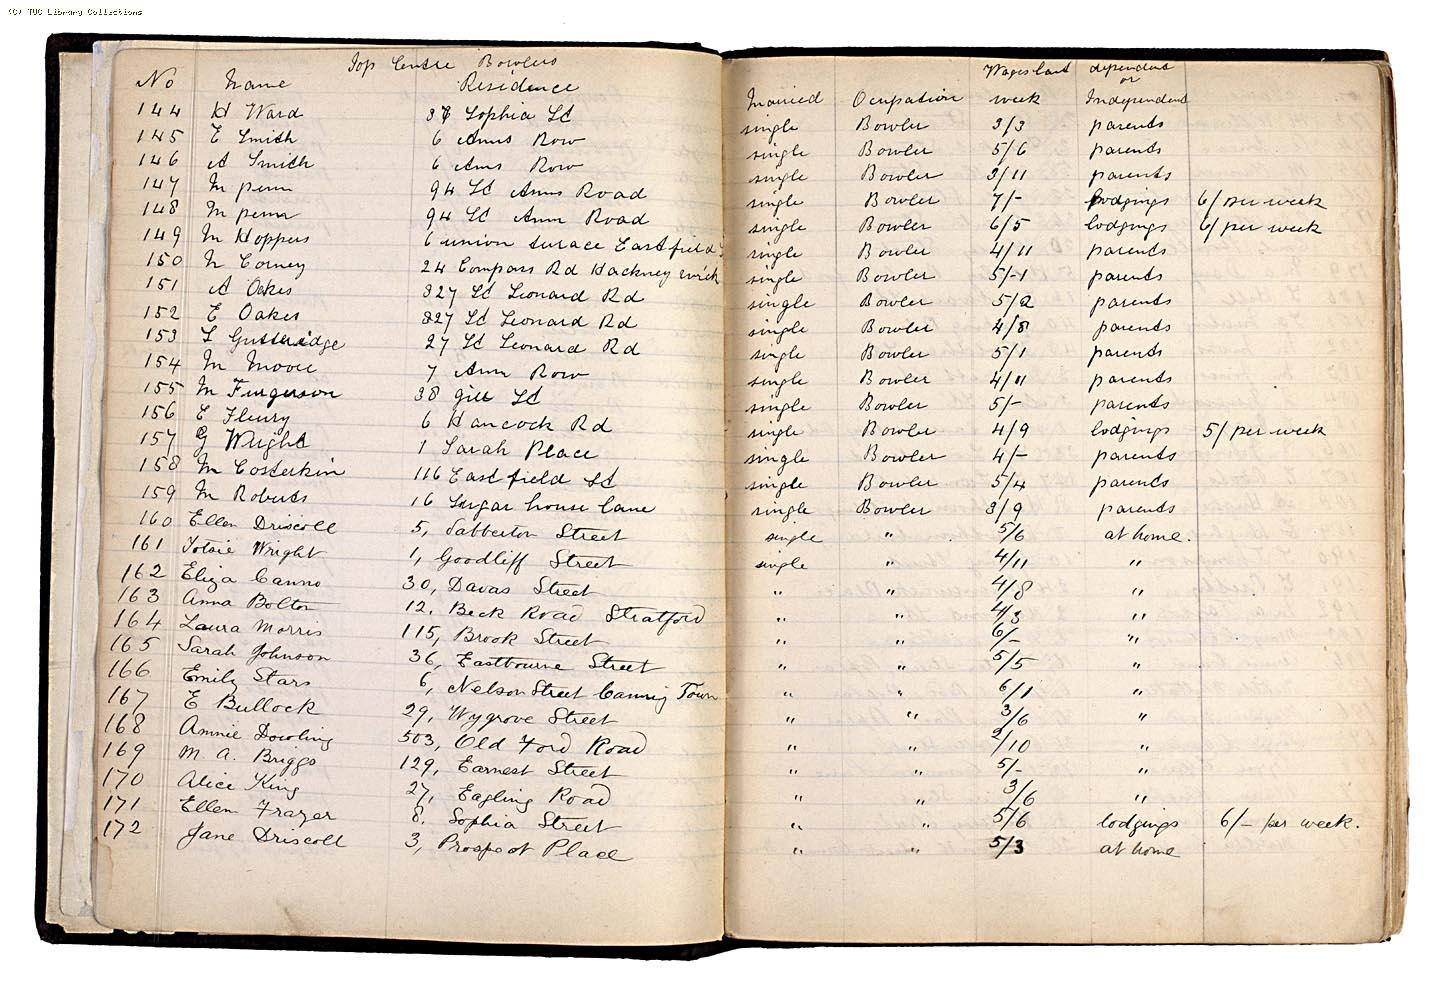 (C) TUC Library Collections
Top Centre Bowlers
No Name Residence Married Ocupation Wages last week dependent or Independent
144 H Ward Sophia St single Bowler 3/3 parents
145 E Smith 6 Anns Row single Bowler 5/6 parents
146 A Smith 6 Anns Row single Bowler 3/11 parents
147 M penn 94 St Anns Road single Bowler 7/- lodgings 6/ per week
148 M penn 94 St Ann Road single Bowler 6/5 lodgings 6/ per week
149 M Hoppers 6 union turace Eastfield single Bowler 4/11 parents
150 M Corney 24 Compass Rd Hackney wick single Bowler 5/-1 parents
151 A Oakes 327 St Leonard Rd single Bowler 5/2 parents
152 E Oakes 327 St Leonard Rd single Bowler 4/8 parents
153 L Gutteridge 27 St Leonard Rd single Bowler 5/1 parents
154 M Moore 7 Ann Row single Bowler 4/11 parents
155 M Furgerson 38 gill St single Bowler 5/- parents
156 E Fleury 6 Hancock Rd single Bowler 4/9 lodgings 5/ per week
157 G Wright 1 Sarah Place single Bowler 4/- parents
158 M Costerkin 116 Eastfield St single Bowler 5/4 parents
159 M Roberts 16 Sugar house lane single Bowler 3/9 parents
160 Ellen Driscoll 5, Sabberton Street single " 5/6 at home.
161 Totsie Wright 1, Goodliff Street single " 4/11 "
162 Eliza Canno 30, Davas Street " " 4/8 "
163 Anna Bolton 12, Beck Road Stratford " " 4/3 "
164 Laura Morris 115, Brook Street " " 6/- "
165 Sarah Johnson 36, Eastbourne Street " " 5/5 "
166 Emily Stars 6, Nelson Street Canning Town " " 6/1 "
167 E Bullock 29, Wygrove Street " " 3/6 "
168 Annie Dowling 503, Old Ford Road " " 2/10 "
169 M. A. Briggs 129, Earnest Street " " 5/- "
170 Alice King 27, Eagling Road " " 3/6 "
171 Ellen Frazer 8, Sophia Street " " 5/6 lodgings 6/- per week.
172 Jane Driscoll 3, Prospect Place " " 5/3 at home